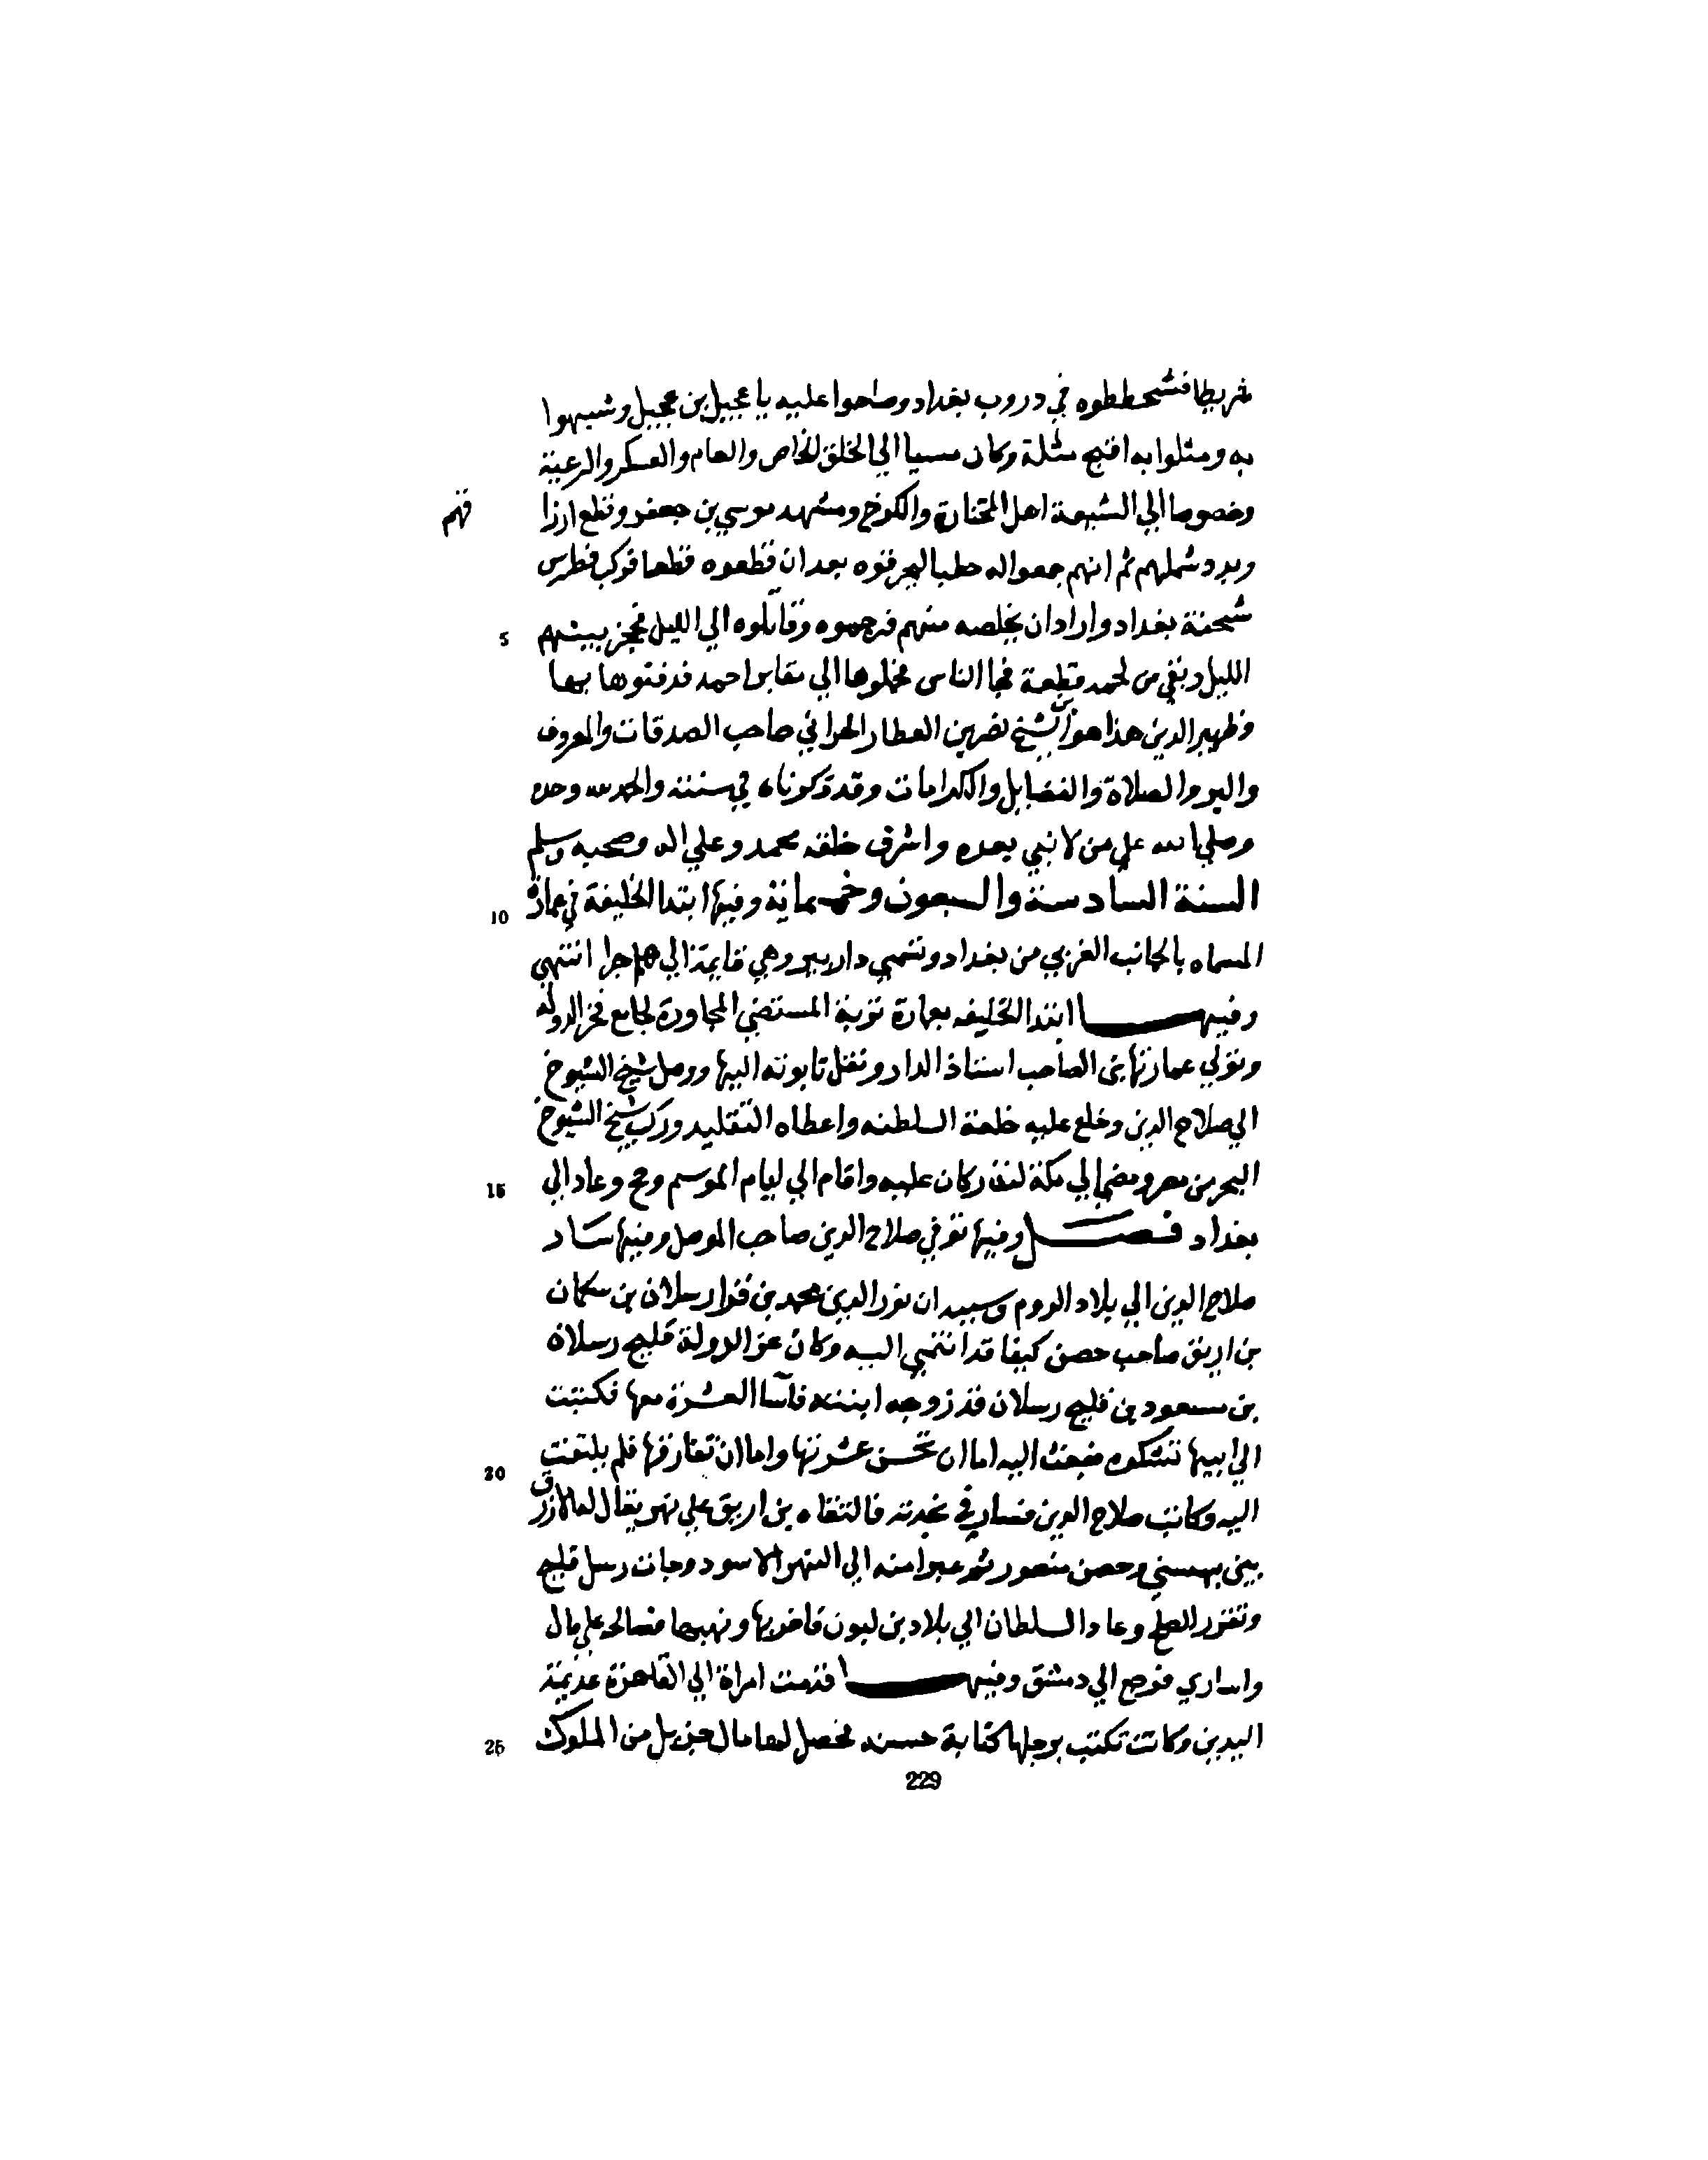 شريطا فشحططوه في دروب بغداد وصاحوا عليه يا عجيل بن عجيل وشبهوا
به ومثلوا به اقبح مثلة وكان مسيا الي الخلق الخاص والعام والعسكر والرعية
وخصوصا الي الشيعة اهل المختارة والكرخ ومشهد موسي بن جعفر وقطع ارزا
قهم
وبدد شملهم ثم انهم جمعوا له حطبا ليحرقوه بعد ان قطعوه قطعا فركب قطرس
شحنة بغداد واراد ان يخلصه منهم فرجموه وقاتلوه الي الليل فحجز بينهم
5
الليل وبقي من لحمه قطعة فجا الناس فحملوها الي مقابر احمد فدفنوها بها
وظهير الدين هذا هو ابن الشيخ نصر بن العطار الحراني صاحب الصدقات والمعروف
والبر والصلاة والفضايل والكرامات وقد ذكرناه في سنته والحمد لله وحده
وصلي الله علي من لا نبي بعده واشرف خلقه محمد وعلي اله وصحبه وسلم
السنة السادسة والسبعون وخمسماية وفيها ابتدا الخليفة في عمارة
10
المسماه بالجانب الغربي من بغداد وتسمي دار بير وهي قايمة الي هلم جرا انتهي
وفيها ابتدا الخليفه بعمارة تربة المستضي المجاورة لجامع فخر الدولة
وتولي عمارتها بن الصاحب استاذ الدار ونقل تابوته اليها ووصل شيخ الشيوخ
الي صلاح الدين وخلع عليه خلعة السلطنه واعطاه التقليد وركب شيخ الشيوخ
البحر من مصر ومضي الي مكة لنذر كان عليه واقام الي ليام الموسم وحج وعاد الي
15
بغداد فصل وفيها توفي صلاح الدين صاحب الموصل وفيها سار
صلاح الدين الي بلاد الروم وسببه ان نور الدين محمد بن قرا رسلان بن سكمان
بن ارتق صاحب حصن كيفا قد انتمي اليه وكان عز الدولة قليج رسلان
بن مسعود بن قليج رسلان قد زوجه ابنته فاسا العشرة معها فكتبت
الي ابيها تشكوه فبعث اليه اما ان تحسن عشرتها واما ان تفارقها فلم يلتفت
20
اليه وكاتب صلاح الدين فسار في نجدته فالتقاه بن ارتق علي نهر يقال له الازرق
بين بهسني وحصن منصور ثم عبرا منه الي النهر الاسود وجات رسل قليج
وتقرر الصلح وعاد السلطان الي بلاد بن ليون فاخربها ونهبها فصالحه علي مال
واساري فرجع الي دمشق وفيها قدمت امراة الي القاهرة عديمة
اليدين وكانت تكتب برجلها كتابة حسنه فحصل لها مال جزيل من الملوك
25
229